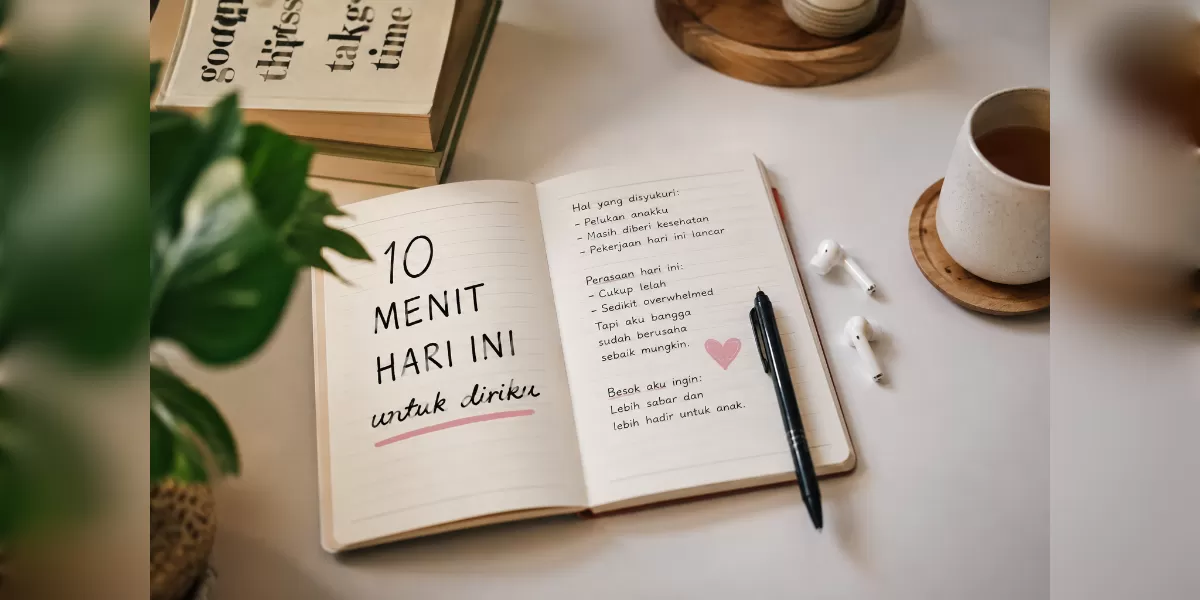 good
take
time
10
MENIT
HARI INI
untuk diriku
Hal yang disyukuri:
- Pelukan anakku
- Masih diberi kesehatan
- Pekerjaan hari ini lancar
Perasaan hari ini:
- Cukup lelah
- Sedikit overwhelmed
Tapi aku bangga
sudah berusaha
sebaik mungkin.
Besok aku ingin:
Lebih sabar dan
lebih hadir untuk anak.